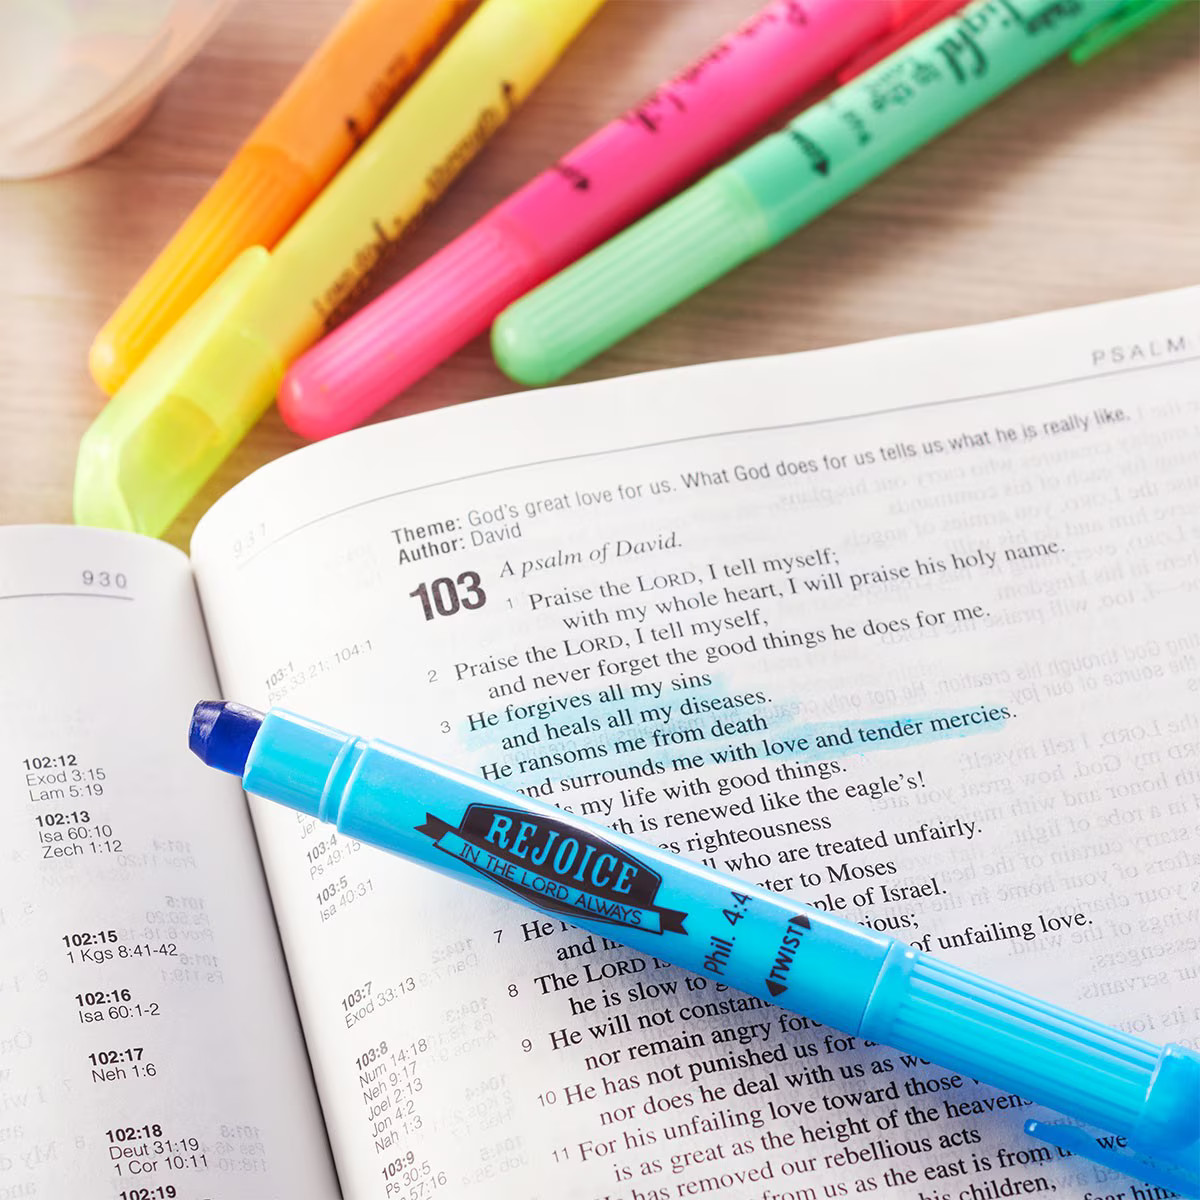 PSALM
931
Theme: God's great love for us. What God does for us tells us what he is really like.
Author: David
103
A psalm of David.
1 Praise the LORD, I tell myself;
with my whole heart, I will praise his holy name.
2 Praise the LORD, I tell myself,
and never forget the good things he does for me.
3 He forgives all my sins
and heals all my diseases.
He ransoms me from death
and surrounds me with love and tender mercies.
my life with good things.
is renewed like the eagle's!
righteousness
who are treated unfairly.
to Moses
of Israel.
7 He
and
of unfailing love.
8 The LORD is
he is slow to
9 He will not constant
nor remain angry
10 He has not punished us for
nor does he deal with us as we
11 For his unfailing love toward those
is as great as the height of the heavens
has removed our rebellious acts
from us as the east is from
we
his children,
103:1
Pss 33:21; 104:1
103:4
Ps 49:15
103:5
Isa 40:31
103:7
Exod 33:13
103:8
Num 14:18
Neh 9:17
Joel 2:13
Jon 4:2
Nah 1:3
103:9
Ps 30:5
57:16
930
102:12
Exod 3:15
Lam 5:19
102:13
Isa 60:10
Zech 1:12
102:15
1 Kgs 8:41-42
102:16
Isa 60:1-2
102:17
Neh 1:6
102:18
Deut 31:19
1 Cor 10:11
102:19
REJOICE
IN THE LORD ALWAYS
Phil. 4:4
TWIST
light
to the